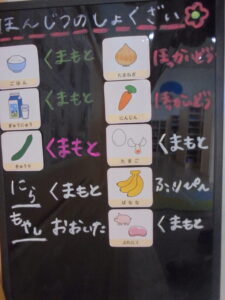 ほんじつのしょくざい
ごはん くまもと
たまねぎ ほっかいどう
ぎゅうにゅう くまもと
にんじん ほっかいどう
きゅうり くまもと
たまご くまもと
にら くまもと
ばなな ふぃりぴん
もやし おおいた
ぶたにく くまもと